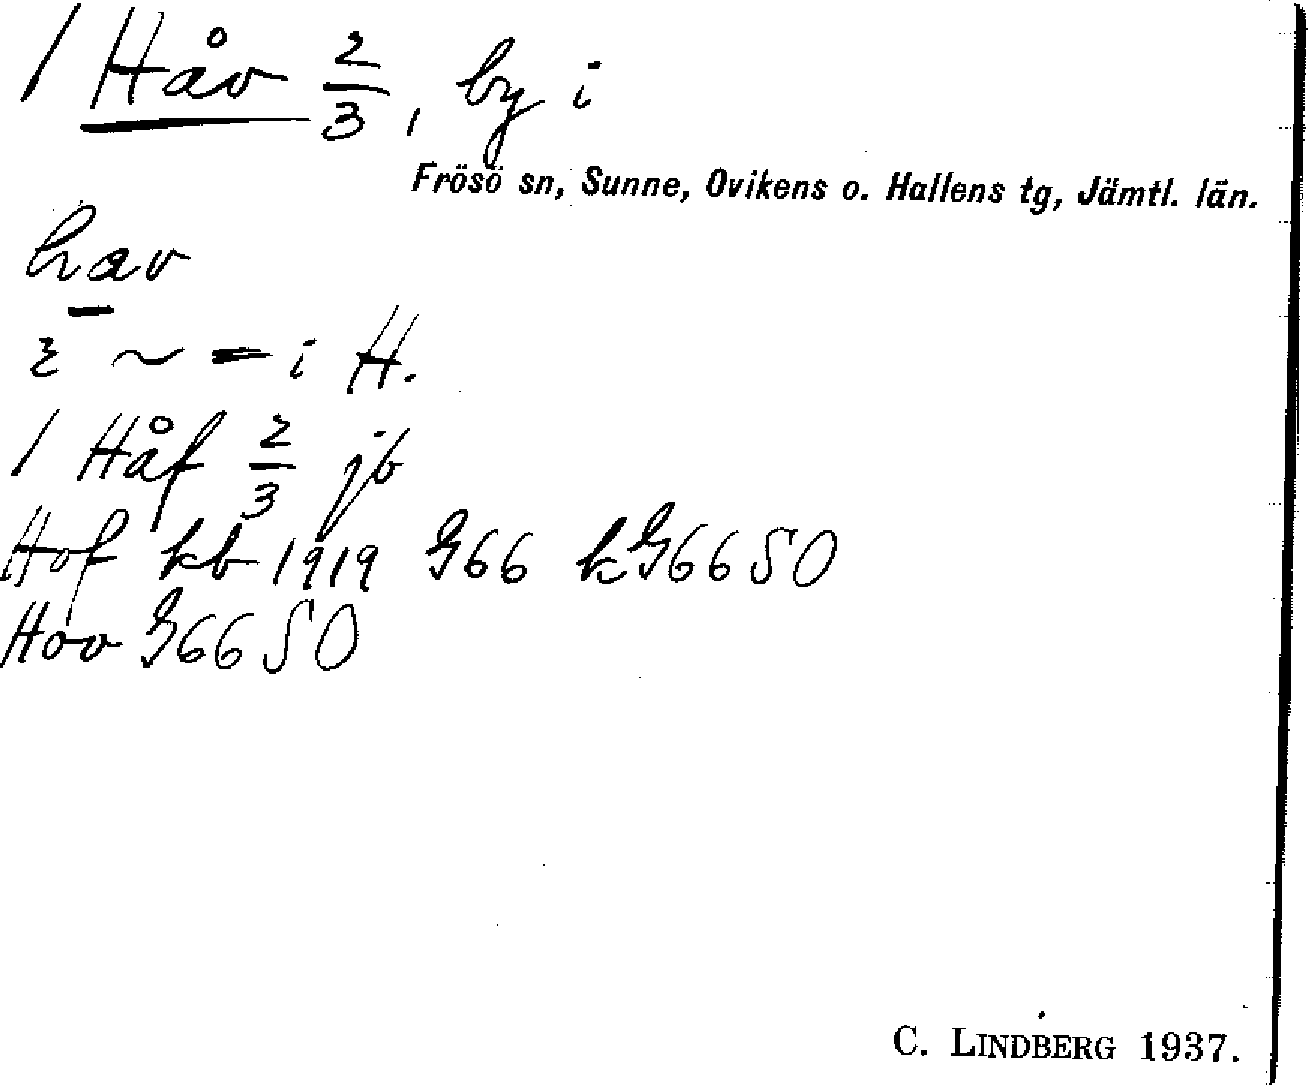 1 Håv 2/3, by i
Frösö sn, Sunne, Ovikens o. Hallens tg, Jämtl. län.
hav
i H.
1 Håf 2/3 jb
Hof kb 1919 G66 kG66SO
Hov G66SO
C. LINDBERG 1937.